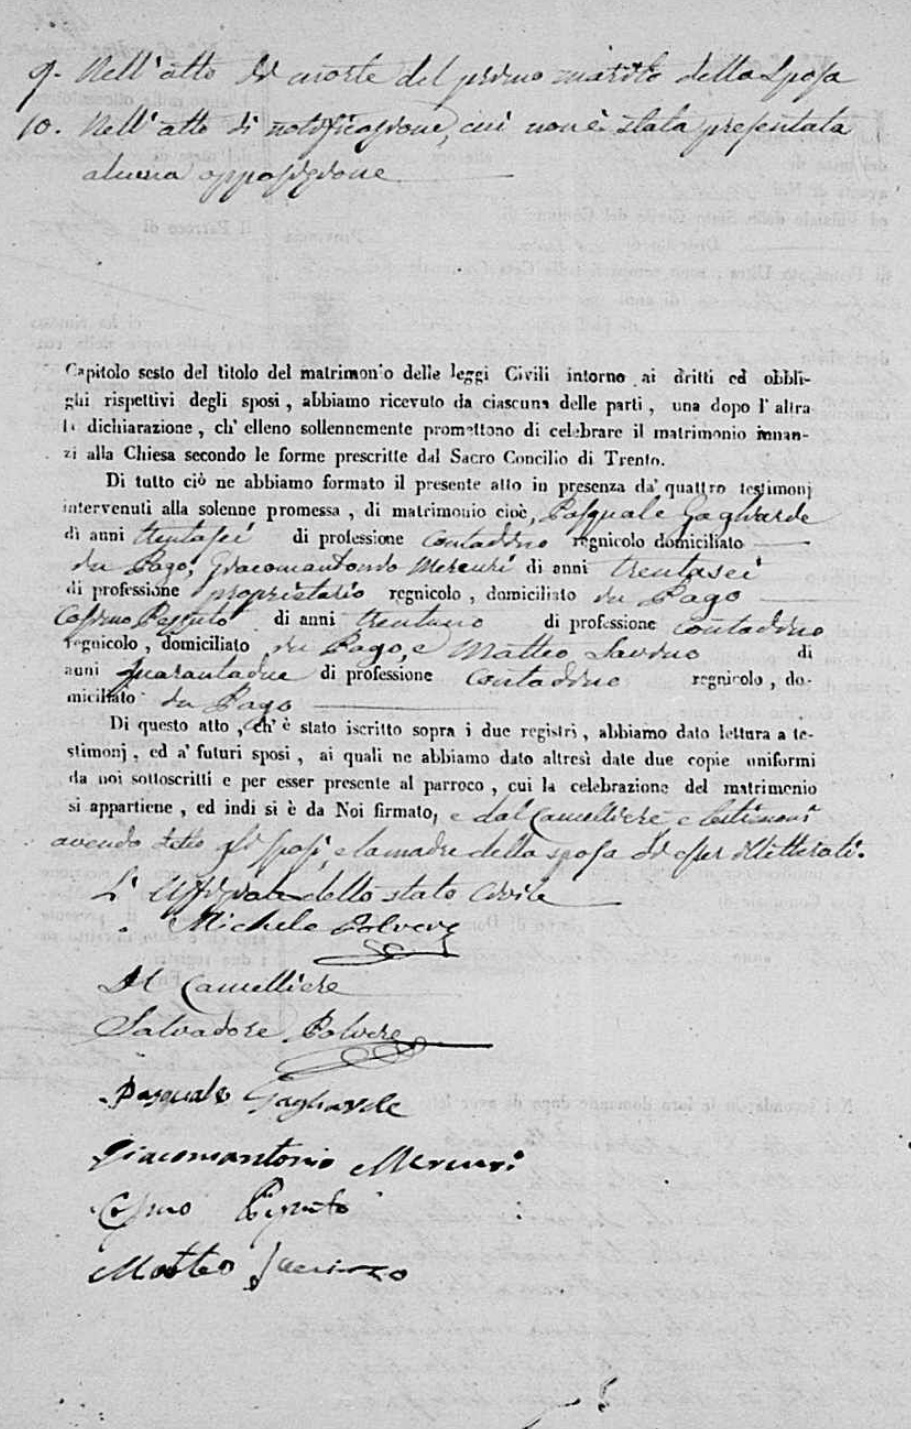 9. Nell'atto di morte del primo marito della sposa
10. Nell'atto di notificazione, cui non è stata presentata
alcuna opposizione
Capitolo sesto del titolo del matrimonio delle leggi Civili intorno ai dritti ed obbli-
ghi rispettivi degli sposi, abbiamo ricevuto da ciascuna delle parti, una dopo l'altra
la dichiarazione, ch'elleno sollennemente promettono di celebrare il matrimonio innan-
zi alla Chiesa secondo le forme prescritte dal Sacro Concilio di Trento.
Di tutto ciò ne abbiamo formato il presente atto in presenza da' quattro testimonj
intervenuti alla solenne promessa, di matrimonio cioè, Pasquale Gagliarde
di anni trentasei di professione contadino regnicolo domiciliato
in Pago, Giacomantonio Mercuri di anni trentasei
di professione proprietario regnicolo, domiciliato in Pago
Cosimo Peppito di anni trentuno di professione contadino
regnicolo, domiciliato in Pago, e Matteo Savino di
anni quarantadue di professione contadino regnicolo, do-
miciliato in Pago
Di questo atto, ch'è stato iscritto sopra i due registri, abbiamo dato lettura a te-
stimonj, ed a' futuri sposi, ai quali ne abbiamo dato altresì date due copie uniformi
da noi sottoscritti e per esser presente al parroco, cui la celebrazione del matrimonio
si appartiene, ed indi si è da Noi firmato, e dal Cancelliere e testimoni
avendo detto gli sposi, e la madre della sposa di esser illitterati.
L'Uffiziale dello stato Civile
Michele Polvere
Il Cancelliere
Salvadore Polvere
Pasquale Gagliarde
Giacomantonio Mercuri
Cosimo
Matteo Savino